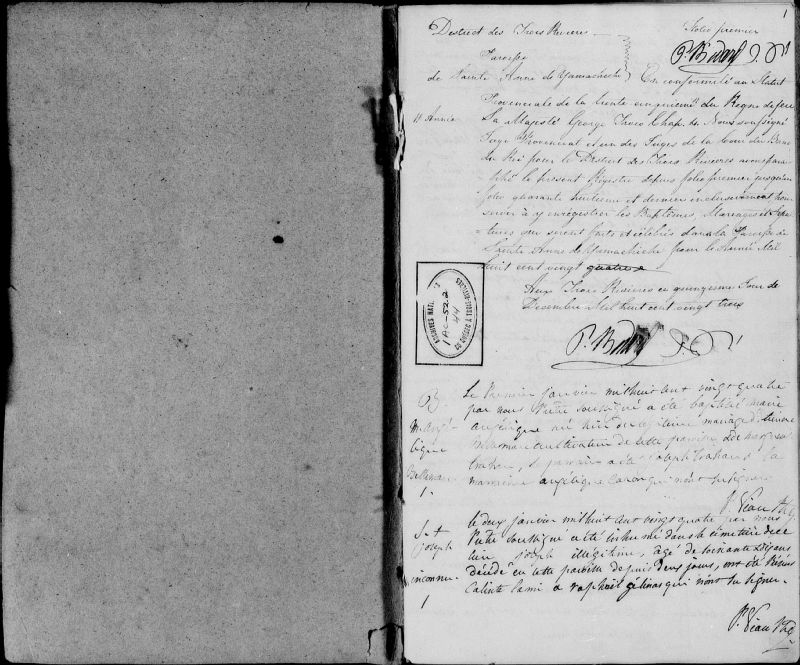 1
District des Trois Rivieres
Folio premier
P. Bedard J.
Paroisse
de Sainte Anne de Yamachiche
En conformité au Statut
Provinciale de la trente cinquieme du Regne de feu
4e Année
Sa Majesté George Trois Chap. Nous soussigné
Juge Provincial et un des Juges de la Cour du Banc
du Roi pour le District des Trois Rivieres avons para-
phé le present Registre depuis folio premier jusqu'au
folio quarante huitieme et dernier inclusivement pour
servir à y enregistrer les Baptêmes, Mariages et Sepul-
-tures qui seront faits et célébrés dans la Paroisse de
Sainte Anne de Yamachiche pour l'Année Mil
huit cent vingt quatre
Aux Trois Rivieres ce quinzieme Jour de
Decembre Mil huit cent vingt trois
P. Bedard J.
ARCHIVES NATIONALES
DU QUÉBEC À TROIS-RIVIÈRES
44
B.
M. Angé-
lique
Bellemare
1
Le Premier janvier mil huit cent vingt quatre
par nous Prêtre soussigné a été baptisée marie
angélique née hier du légitime mariage d'
Bellemare cultivateur de cette paroisse
le parrain a été Joseph Trahan la
marraine angélique Caron qui n'ont su signer
S. +
Joseph
inconnu
1
le deux janvier mil huit cent vingt quatre par nous
Prêtre soussigné a été inhumé dans le cimetière de ce
lieu joseph illégitime, âgé de soixante
décédé en cette paroisse depuis deux jours, ont été présens
Calixte Lami & raphaël gélinas qui n'ont su signer